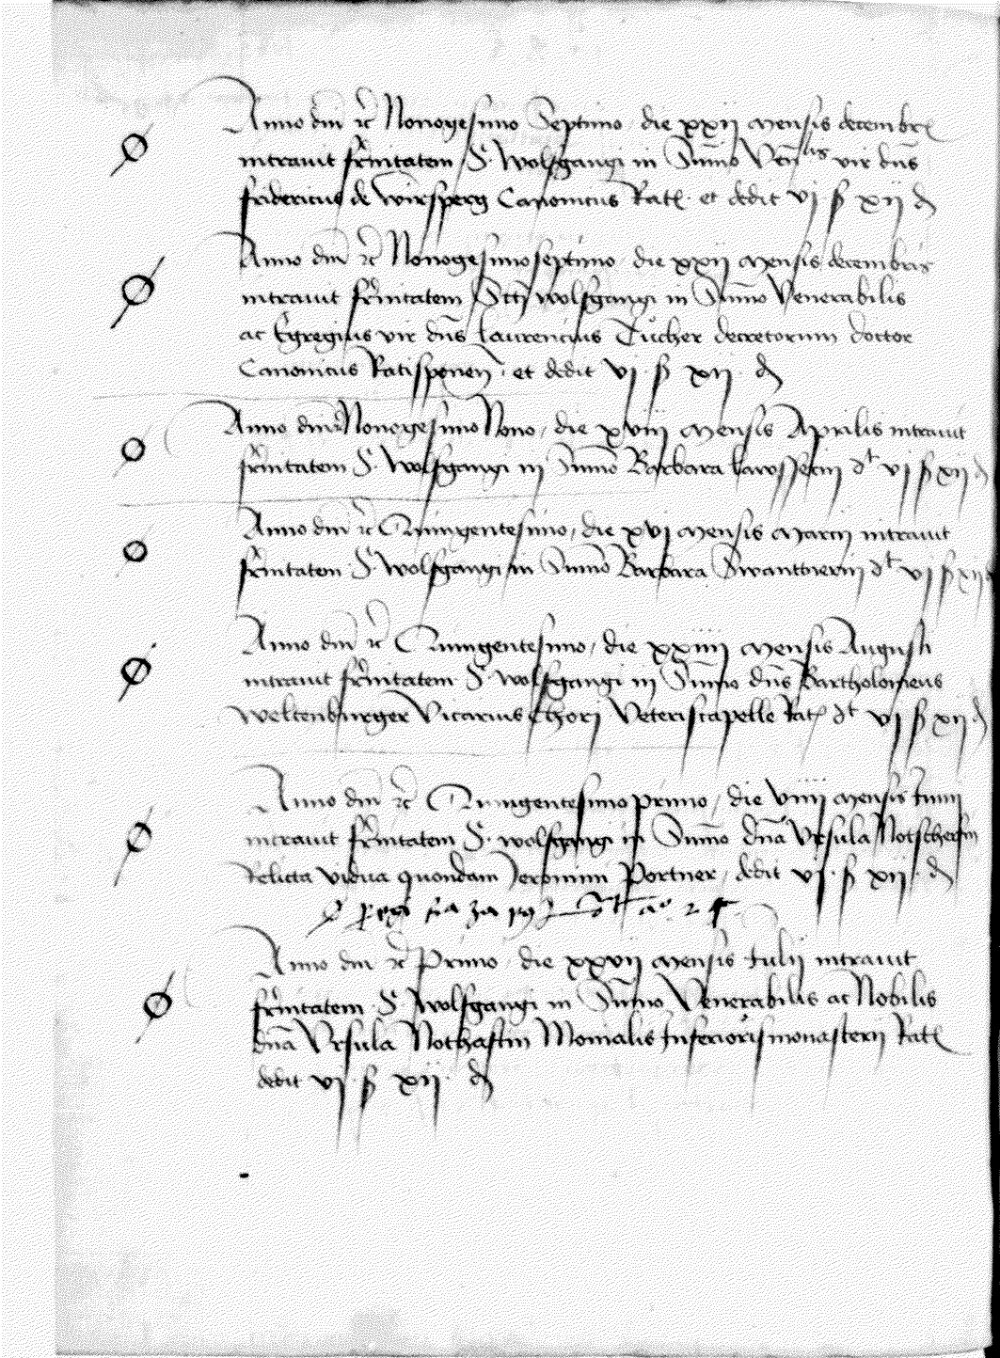 Anno dni ꝛc Nonogesimo Septimo die xxij mensis decembr
intrauit frnitatem S. Wolfgangi in Sum̄o Ven̄lis vir dn̄s
fridericus de Wirsperg Canonicus Rat. et dedit vj ß xij ₰
Anno dni ꝛc Nonogesimoseptimo die xxij mensis decembris
intrauit frnitatem Scti wolfgangi in Sum̄o Venerabilis
ac Egregius vir dn̄s laurencius Tucher decretorum doctor
Canonicus Ratisponen et dedit vj ß xij ₰
Anno dni ꝛc Nonogesimo Nono, die xviij mensis Aprilis intrauit
frnitatem S. Wolfgangi in Sum̄o Barbara dt vj ß xij ₰
Anno dni ꝛc Quingentesimo, die xvj mensis marcij intrauit
frnitatem S. Wolfgangi in Sum̄o Barbara dt vj ß xij
Anno dni ꝛc Quingentesimo, die xxiiij mensis Augusti
intrauit frnitatem S. Wolfgangi in Sum̄o dn̄s Bartholomeus
Weltenburger Vicarius Chori Veteriscapelle Rat dt vj ß xij ₰
Anno dni ꝛc Quingentesimo primo, die viiij mensis Junij
intrauit frnitatem S. wolfgangi in Sum̄o dn̄a Vrsula
Relicta vidua quondam Jeronimi Portner, dedit vj ß xij ₰
Anno dni ꝛc Primo die xxvij mensis Julij intrauit
frnitatem S. Wolfgangi in Sum̄o Venerabilis ac Nobilis
dn̄a Vrsula Nothaftin Monialis Inferiorismonasterij Rat
dedit vj ß xij ₰